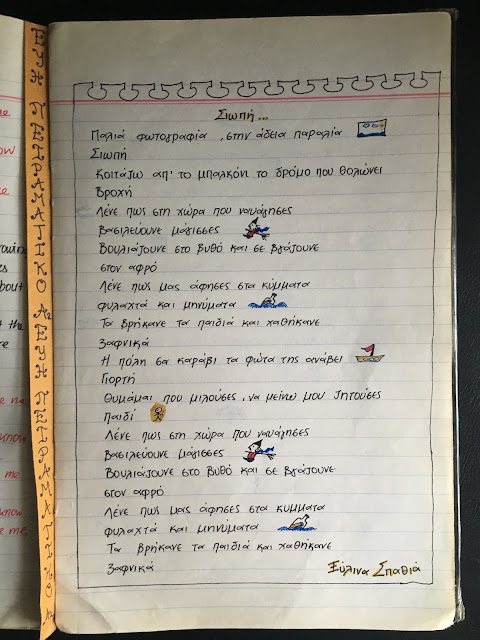 ΕΥΗ ΠΕΙΡΑΜΑΤΙΚΟ Α2 ΕΥΗ ΠΕΙΡΑΜΑΤΙΚΟ Α
Σιωπή ...
Παλιά φωτογραφία , στην άδεια παραλία
Σιωπή
Κοιτάζω απ' το μπαλκόνι το δρόμο που θολώνει
Βροχή
Λένε πως στη χώρα που ναυάγησες
βασιλεύουνε μάγισσες
Βουλιάζουνε στο βυθό και σε βγάζουνε
στον αφρό
Λένε πως μας άφησες στα κύμματα
φυλαχτά και μηνύματα
Τα βρήκανε τα παιδιά και χαθήκανε
Ξαφνικά
Η πόλη σα καράβι τα φώτα της ανάβει
Γιορτή
Θυμάμαι που μιλούσες , να μείνω μου ζητούσες
Παιδί
Λένε πως στη χώρα που ναυάγησες
βασιλεύουνε μάγισσες
Βουλιάζουνε στο βυθό και σε βγάζουνε
στον αφρό
Λένε πως μας άφησες στα κυμματα
φυλαχτά και μηνύματα
Τα βρήκανε τα παιδιά και χαθήκανε
Ξαφνικά
Ξύλινα Σπαθιά